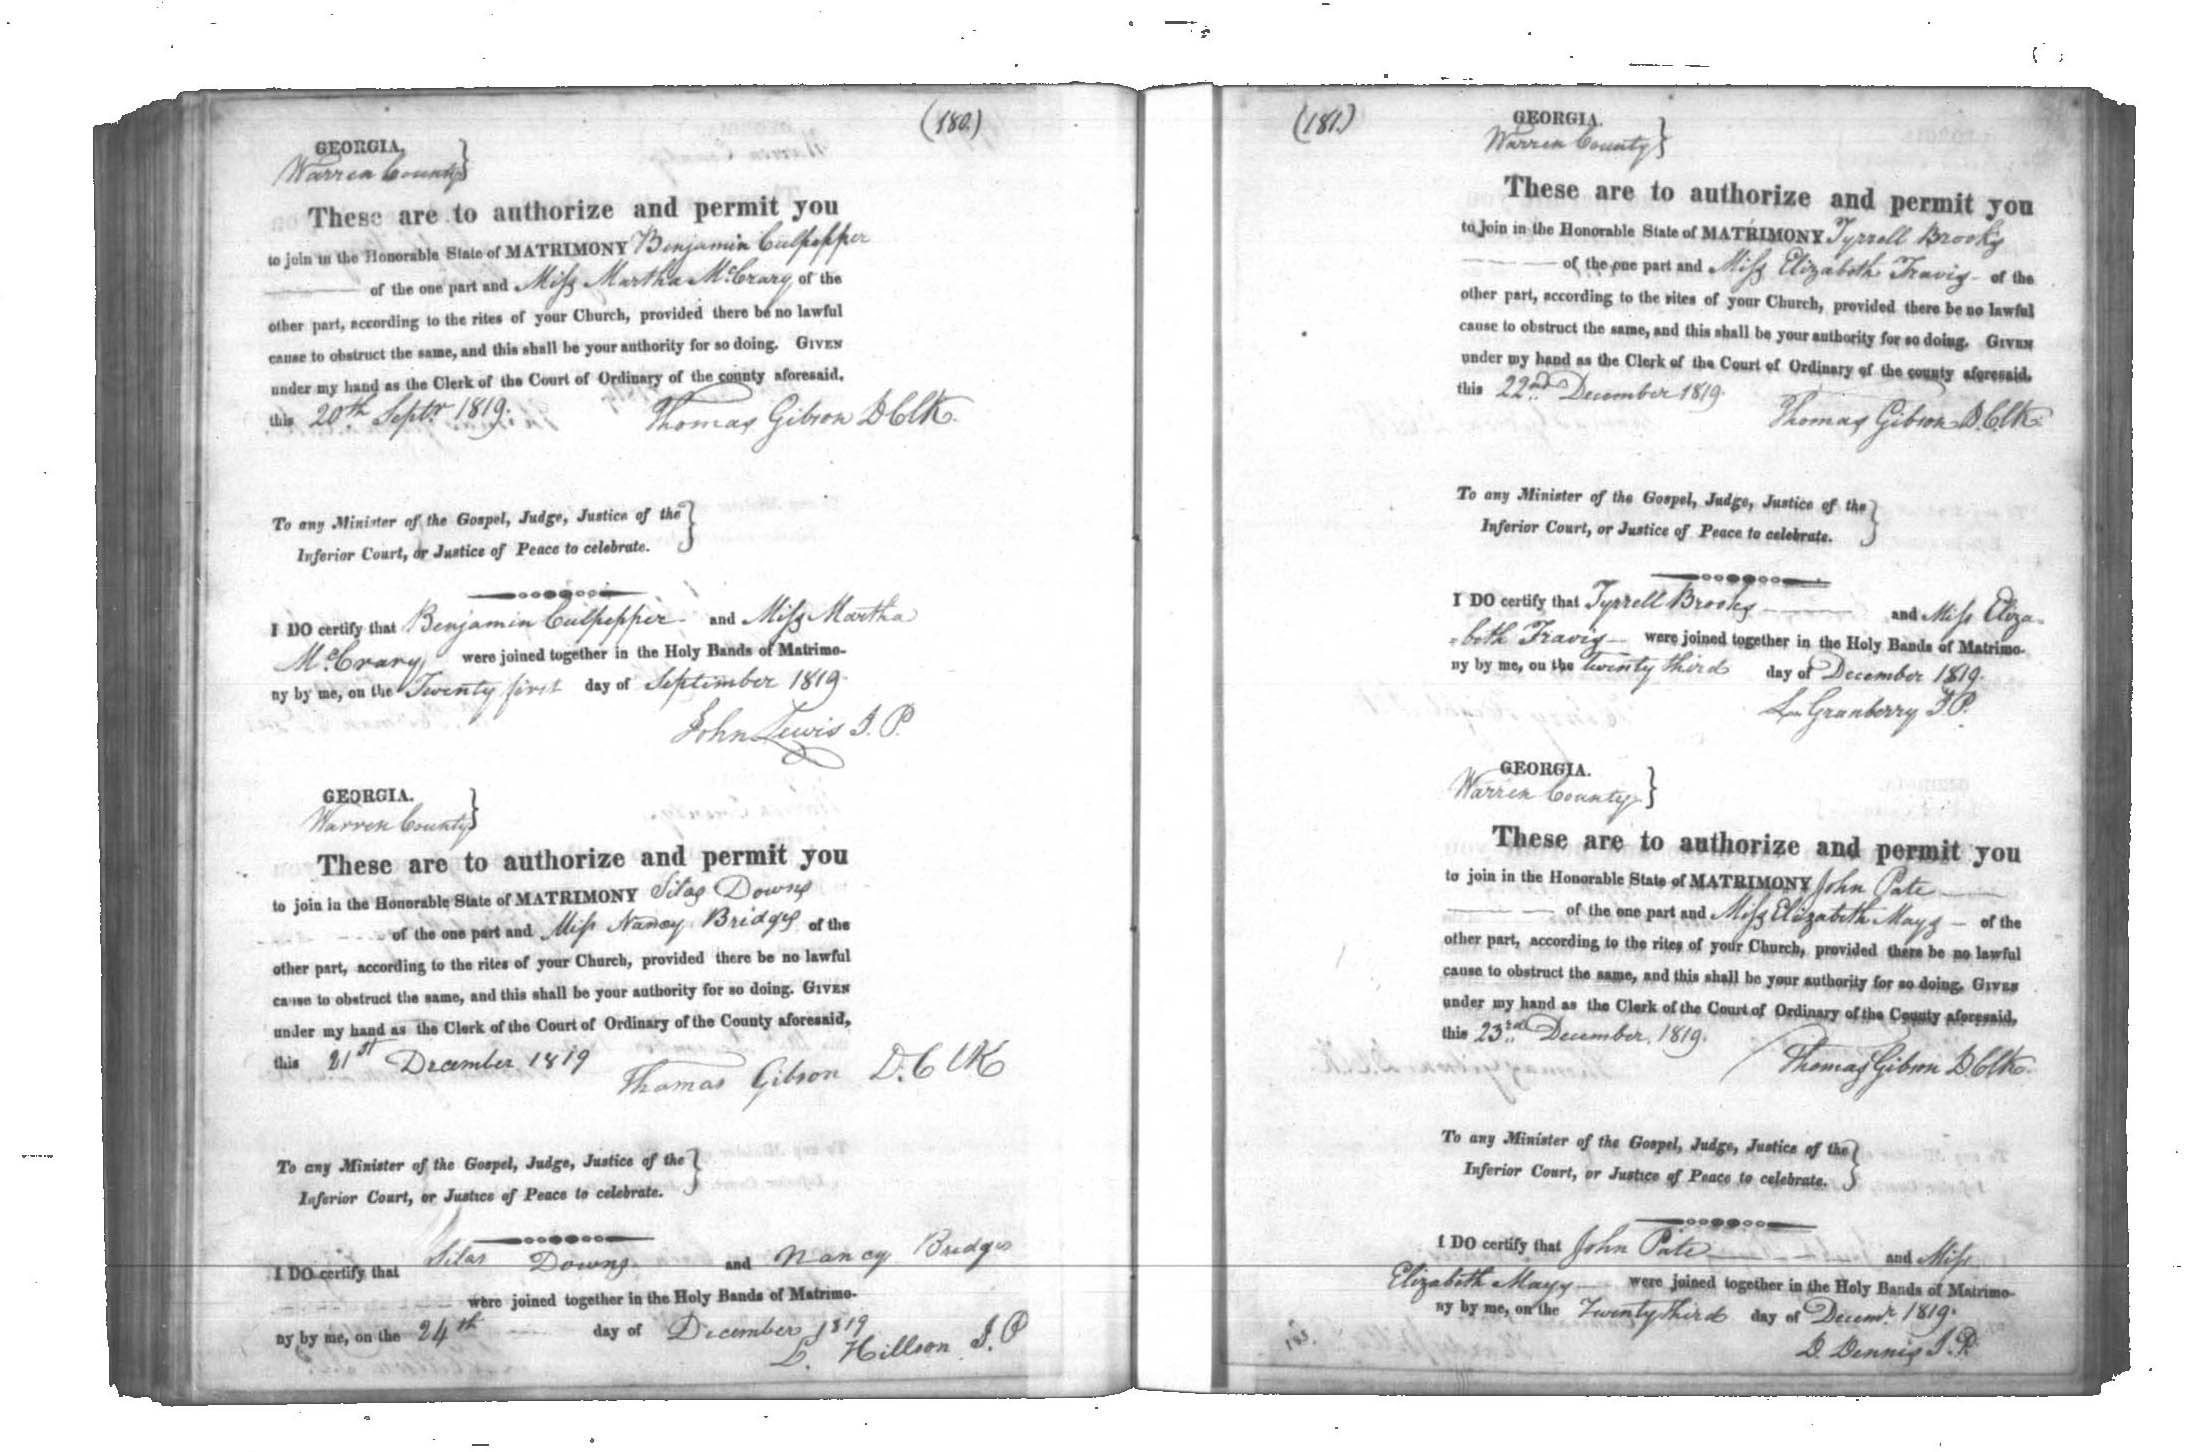 (180.)
GEORGIA,
Warren County
These are to authorize and permit you
to join in the Honorable State of MATRIMONY Benjamin Culpepper
of the one part and Miss Martha McCrary of the
other part, according to the rites of your Church, provided there be no lawful
cause to obstruct the same, and this shall be your authority for so doing. GIVEN
under my hand as the Clerk of the Court of Ordinary of the county aforesaid,
this 20th Septr. 1819.
Thomas Gibson D Clk.
To any Minister of the Gospel, Judge, Justice of the
Inferior Court, or Justice of Peace to celebrate.
I DO certify that Benjamin Culpepper and Miss Martha
McCrary were joined together in the Holy Bands of Matrimo-
ny by me, on the Twenty first day of September 1819.
John Lewis J. P.
GEORGIA.
Warren County
These are to authorize and permit you
to join in the Honorable State of MATRIMONY Silas Downs
of the one part and Miss Nancy Bridges of the
other part, according to the rites of your Church, provided there be no lawful
cause to obstruct the same, and this shall be your authority for so doing. GIVEN
under my hand as the Clerk of the Court of Ordinary of the County aforesaid,
this 21st December 1819
Thomas Gibson D. Clk
To any Minister of the Gospel, Judge, Justice of the
Inferior Court, or Justice of Peace to celebrate.
I DO certify that Silas Downs and Nancy Bridges
were joined together in the Holy Bands of Matrimo-
ny by me, on the 24th day of December 1819
Hillson J. P
(181.)
GEORGIA.
Warren County
These are to authorize and permit you
to join in the Honorable State of MATRIMONY Tyrrell Brooks
of the one part and Miss Elizabeth Travis - of the
other part, according to the rites of your Church, provided there be no lawful
cause to obstruct the same, and this shall be your authority for so doing. GIVEN
under my hand as the Clerk of the Court of Ordinary of the county aforesaid.
this 22nd December 1819.
Thomas Gibson D. Clk.
To any Minister of the Gospel, Judge, Justice of the
Inferior Court, or Justice of Peace to celebrate.
I DO certify that Tyrrell Brooks and Miss Eliza-
-beth Travis were joined together in the Holy Bands of Matrimo-
ny by me, on the twenty third day of December 1819.
Granberry J. P.
GEORGIA.
Warren County
These are to authorize and permit you
to join in the Honorable State of MATRIMONY John Pate
of the one part and Miss Elizabeth Mays - of the
other part, according to the rites of your Church, provided there be no lawful
cause to obstruct the same, and this shall be your authority for so doing, GIVEN
under my hand as the Clerk of the Court of Ordinary of the County aforesaid,
this 23rd December, 1819.
Thomas Gibson D Clk.
To any Minister of the Gospel, Judge, Justice of the
Inferior Court, or Justice of Peace to celebrate.
I DO certify that John Pate and Miss
Elizabeth Mays were joined together in the Holy Bands of Matrimo-
ny by me, on the Twenty third day of Decemr. 1819.
D. Dennis J. P.